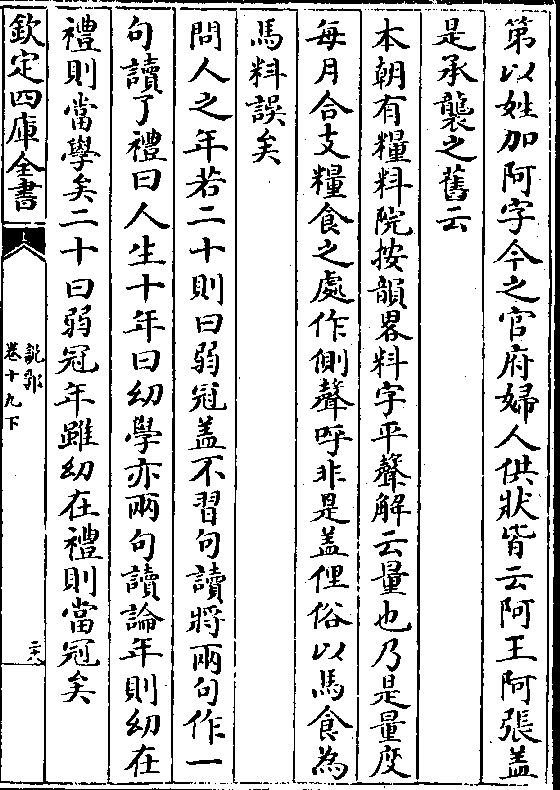 第以姓加阿字今之官府婦人供狀皆云阿王阿張盖
是承襲之舊云
本朝有糧料院按韻畧料字平聲解云量也乃是量度
每月合支糧食之處作側聲呼非是盖俚俗以馬食為
馬料誤矣
問人之年若二十則曰弱冠盖不習句讀將兩句作一
句讀了禮曰人生十年曰幼學亦兩句讀論年則幼在
禮則當學矣二十曰弱冠年雖幼在禮則當冠矣
欽定四庫全書
說郛
卷十九下
二十八